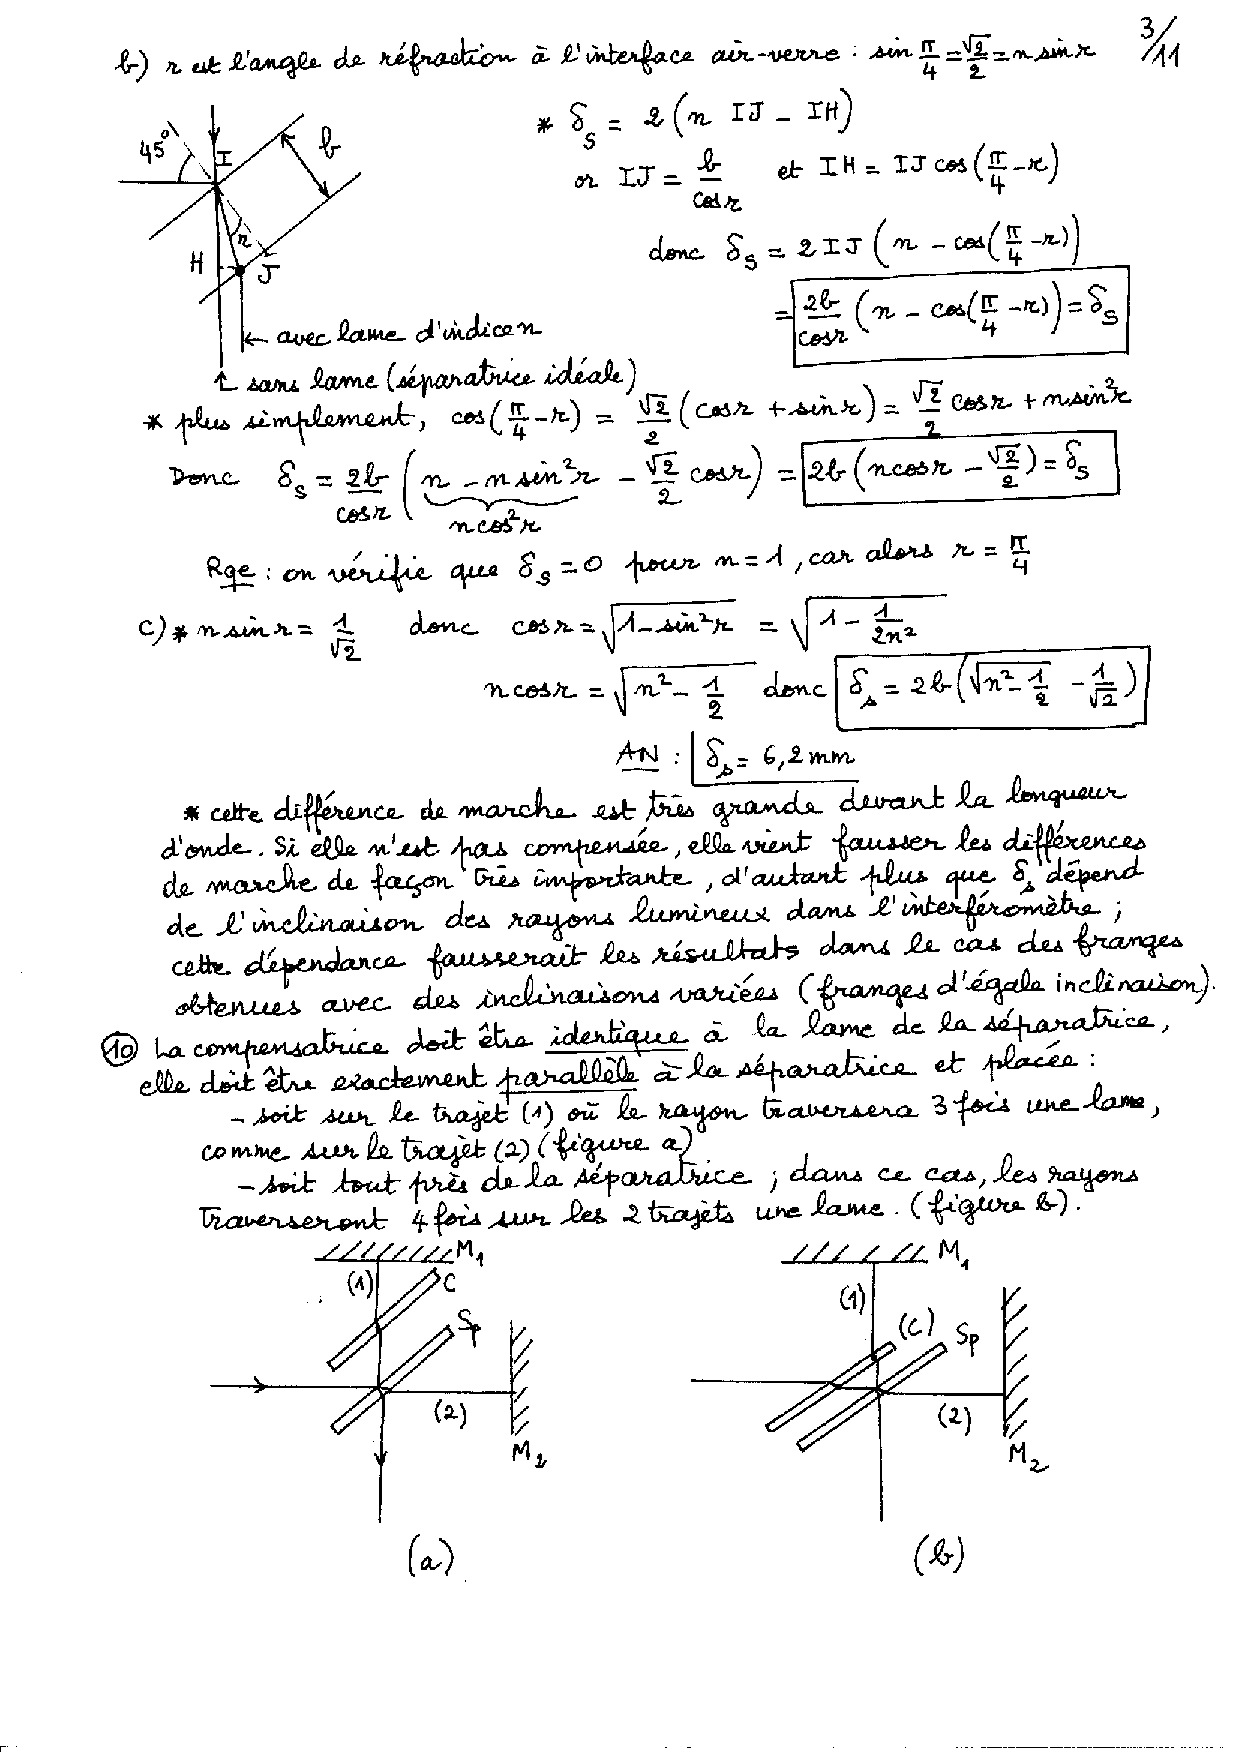 3/11
b) r est l'angle de réfraction à l'interface air-verre : sin π/4 = √2/2 = n sin r
* δs = 2 (n IJ - IH)
45°
I
b
or IJ = b/cos r et IH = IJ cos(π/4 - r)
r
H
J
donc δs = 2 IJ (n - cos(π/4 - r))
= 2b/cos r (n - cos(π/4 - r)) = δs
← avec lame d'indice n
↑ sans lame (séparatrice idéale)
* plus simplement, cos(π/4 - r) = √2/2 (cos r + sin r) = √2/2 cos r + n sin²r
Donc δs = 2b/cos r (n - n sin²r - √2/2 cos r) = 2b (n cos r - √2/2) = δs
n cos²r
Rqe : on vérifie que δs = 0 pour n = 1, car alors r = π/4
c) * n sin r = 1/√2 donc cos r = √(1 - sin²r) = √(1 - 1/2n²)
n cos r = √(n² - 1/2) donc δs = 2b (√(n² - 1/2) - 1/√2)
AN : δs = 6,2 mm
* cette différence de marche est très grande devant la longueur
d'onde. Si elle n'est pas compensée, elle vient fausser les différences
de marche de façon très importante, d'autant plus que δs dépend
de l'inclinaison des rayons lumineux dans l'interféromètre ;
cette dépendance fausserait les résultats dans le cas des franges
obtenues avec des inclinaisons variées (franges d'égale inclinaison).
10 La compensatrice doit être identique à la lame de la séparatrice,
elle doit être exactement parallèle à la séparatrice et placée :
- soit sur le trajet (1) où le rayon traversera 3 fois une lame,
comme sur le trajet (2) (figure a)
- soit tout près de la séparatrice ; dans ce cas, les rayons
traverseront 4 fois sur les 2 trajets une lame. (figure b).
M1
(1)
C
Sp
(2)
M2
(a)
M1
(1)
(C)
Sp
(2)
M2
(b)